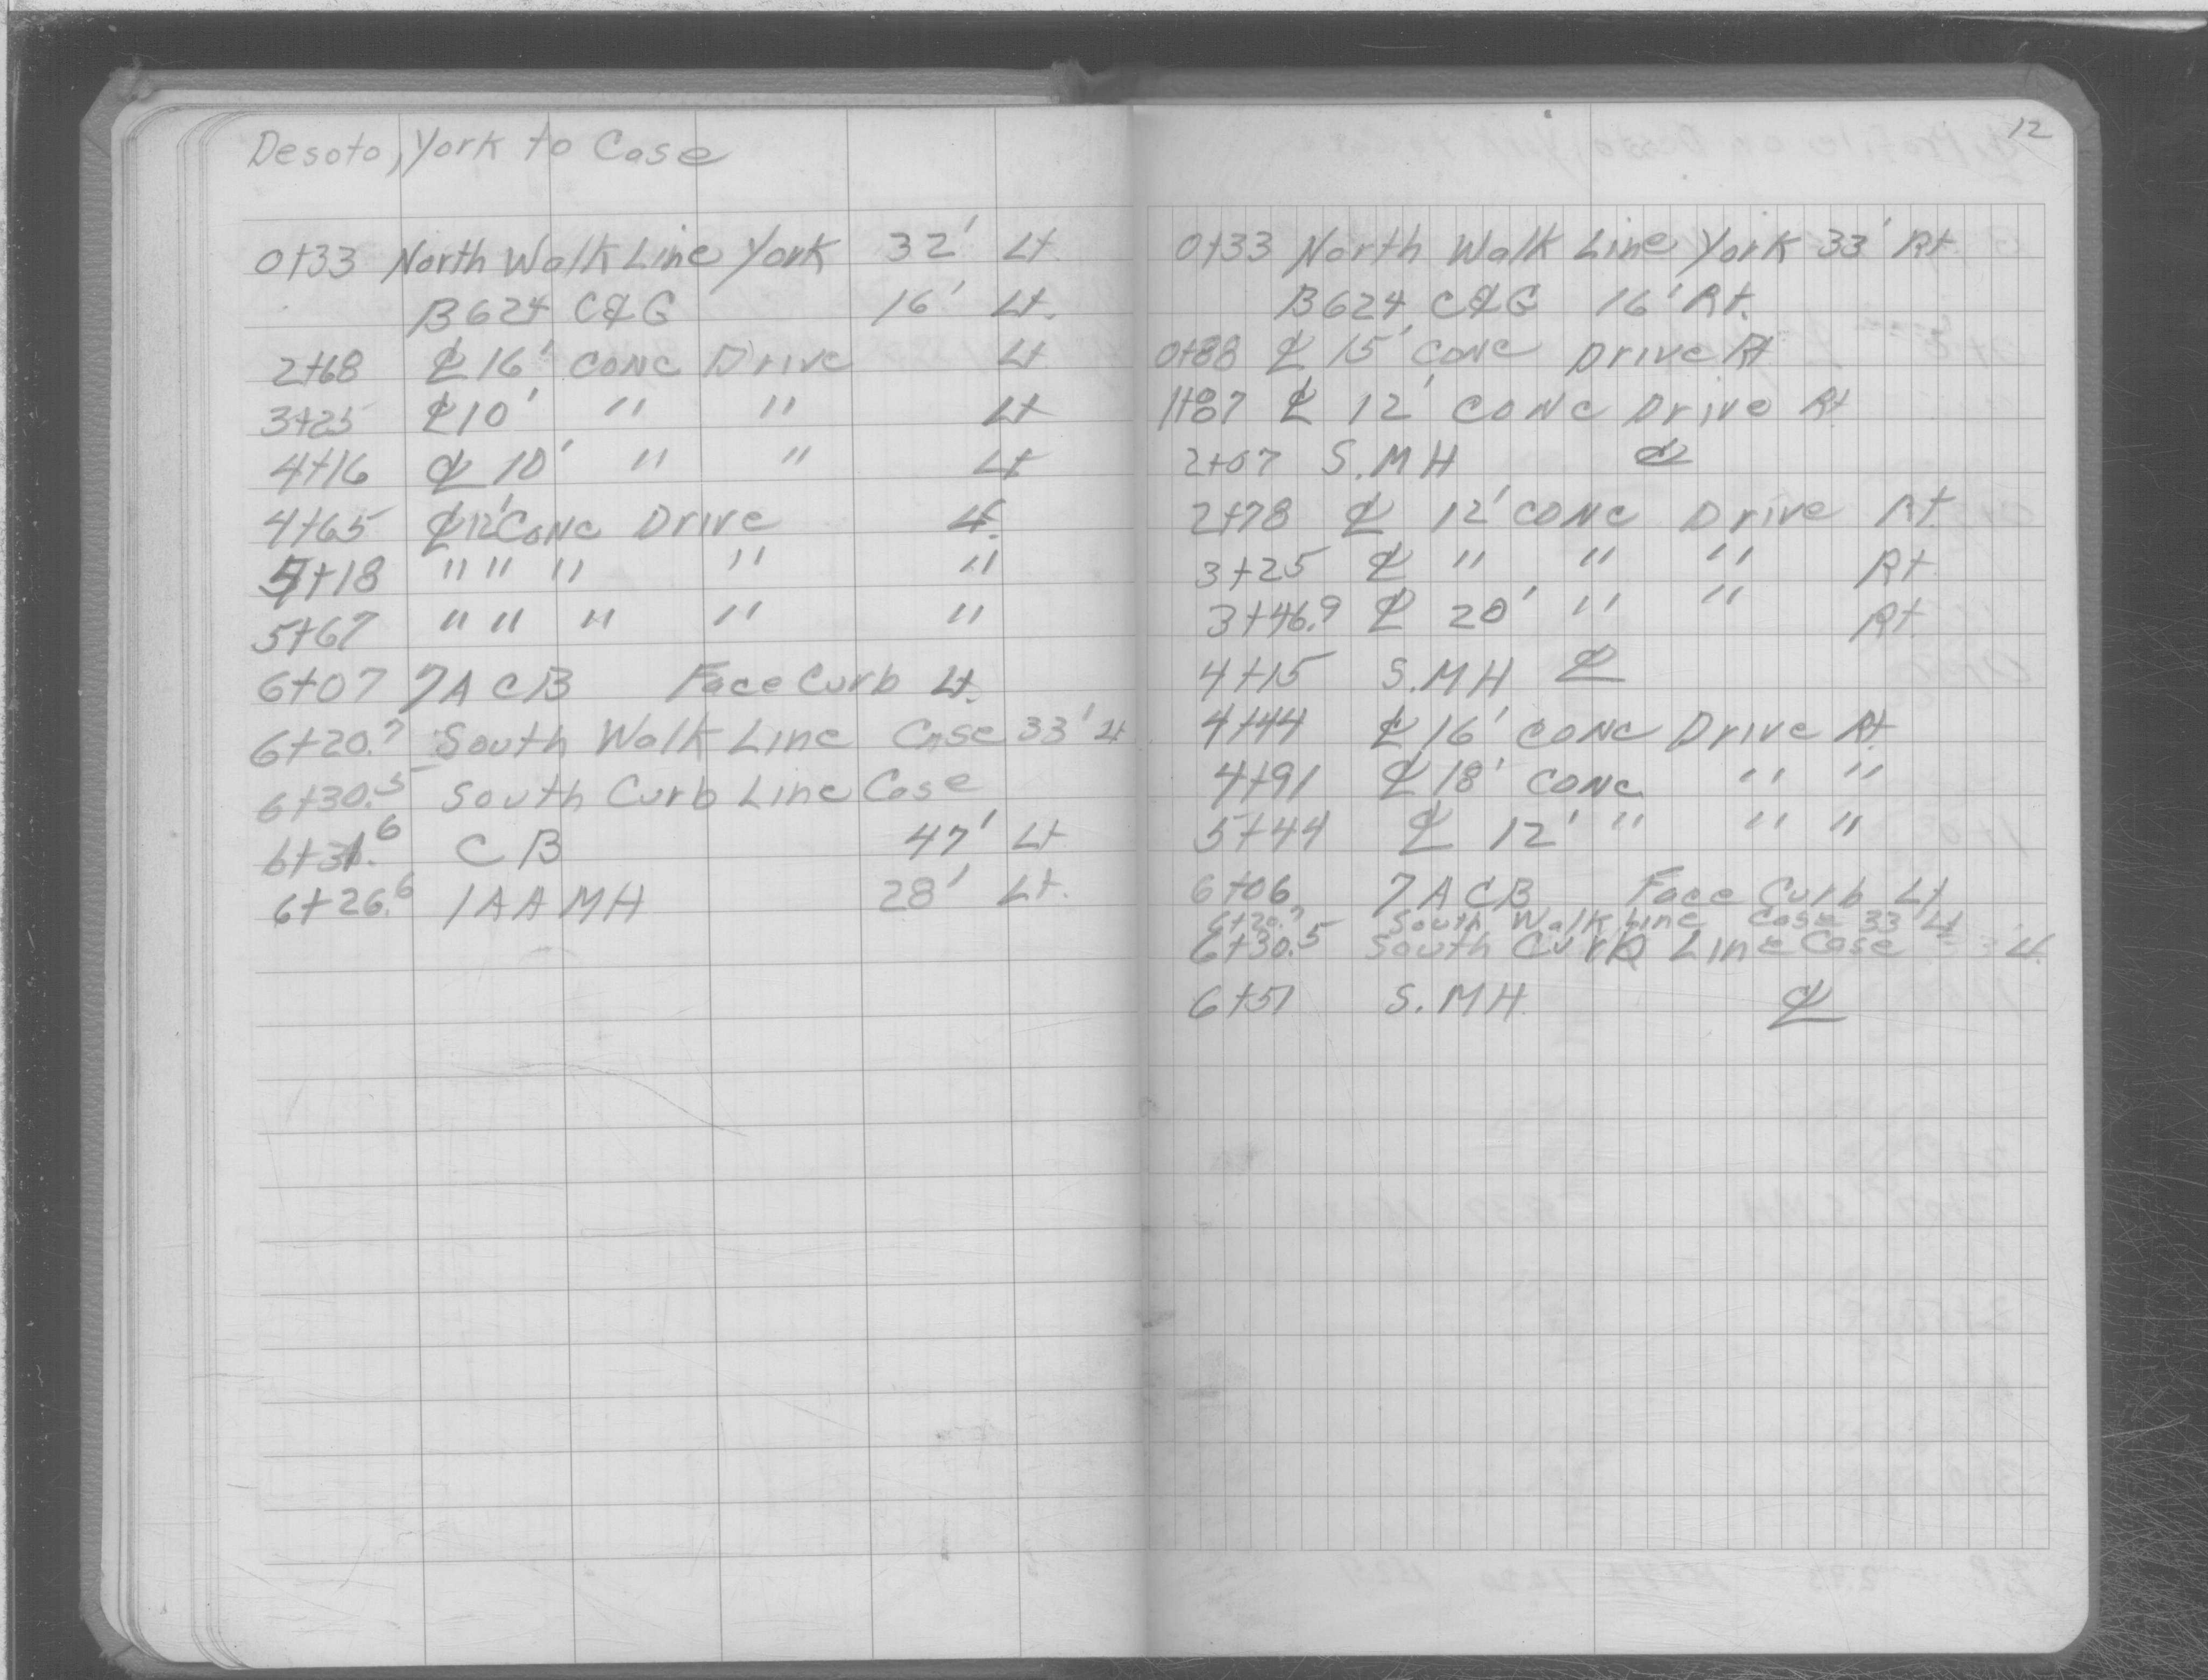 Desoto, York to Case
0+33 North Walk Line York 32' Lt.
B624 C&G 16' Lt.
2+68 ℄ 16' Conc Drive Lt
3+25 ℄ 10' " " Lt
4+16 ℄ 10' " " Lt
4+65 ℄ 12' Conc Drive Lt.
5+18 " " " " "
5+67 " " " " "
6+07 7A CB Face Curb Lt.
6+20.7 South Walk Line Case 33' Lt
6+30.5 South Curb Line Case
6+31.6 CB 47' Lt
6+26.6 1AA MH 28' Lt.
12
0+33 North Walk Line York 33' Rt.
B624 C&G 16' Rt.
0+88 ℄ 15' Conc Drive Rt
1+87 ℄ 12' Conc Drive Rt
2+07 S.MH ℄
2+78 ℄ 12' Conc Drive Rt.
3+25 ℄ " " " Rt.
3+46.9 ℄ 20' " " Rt.
4+15 S.MH ℄
4+44 ℄ 16' Conc Drive Rt.
4+91 ℄ 18' Conc " "
5+44 ℄ 12' " " "
6+06 7A CB Face Curb Lt
6+20.7 South Walk Line Case 33 Lt
6+30.5 South Curb Line Case Lt.
6+51 S.MH ℄